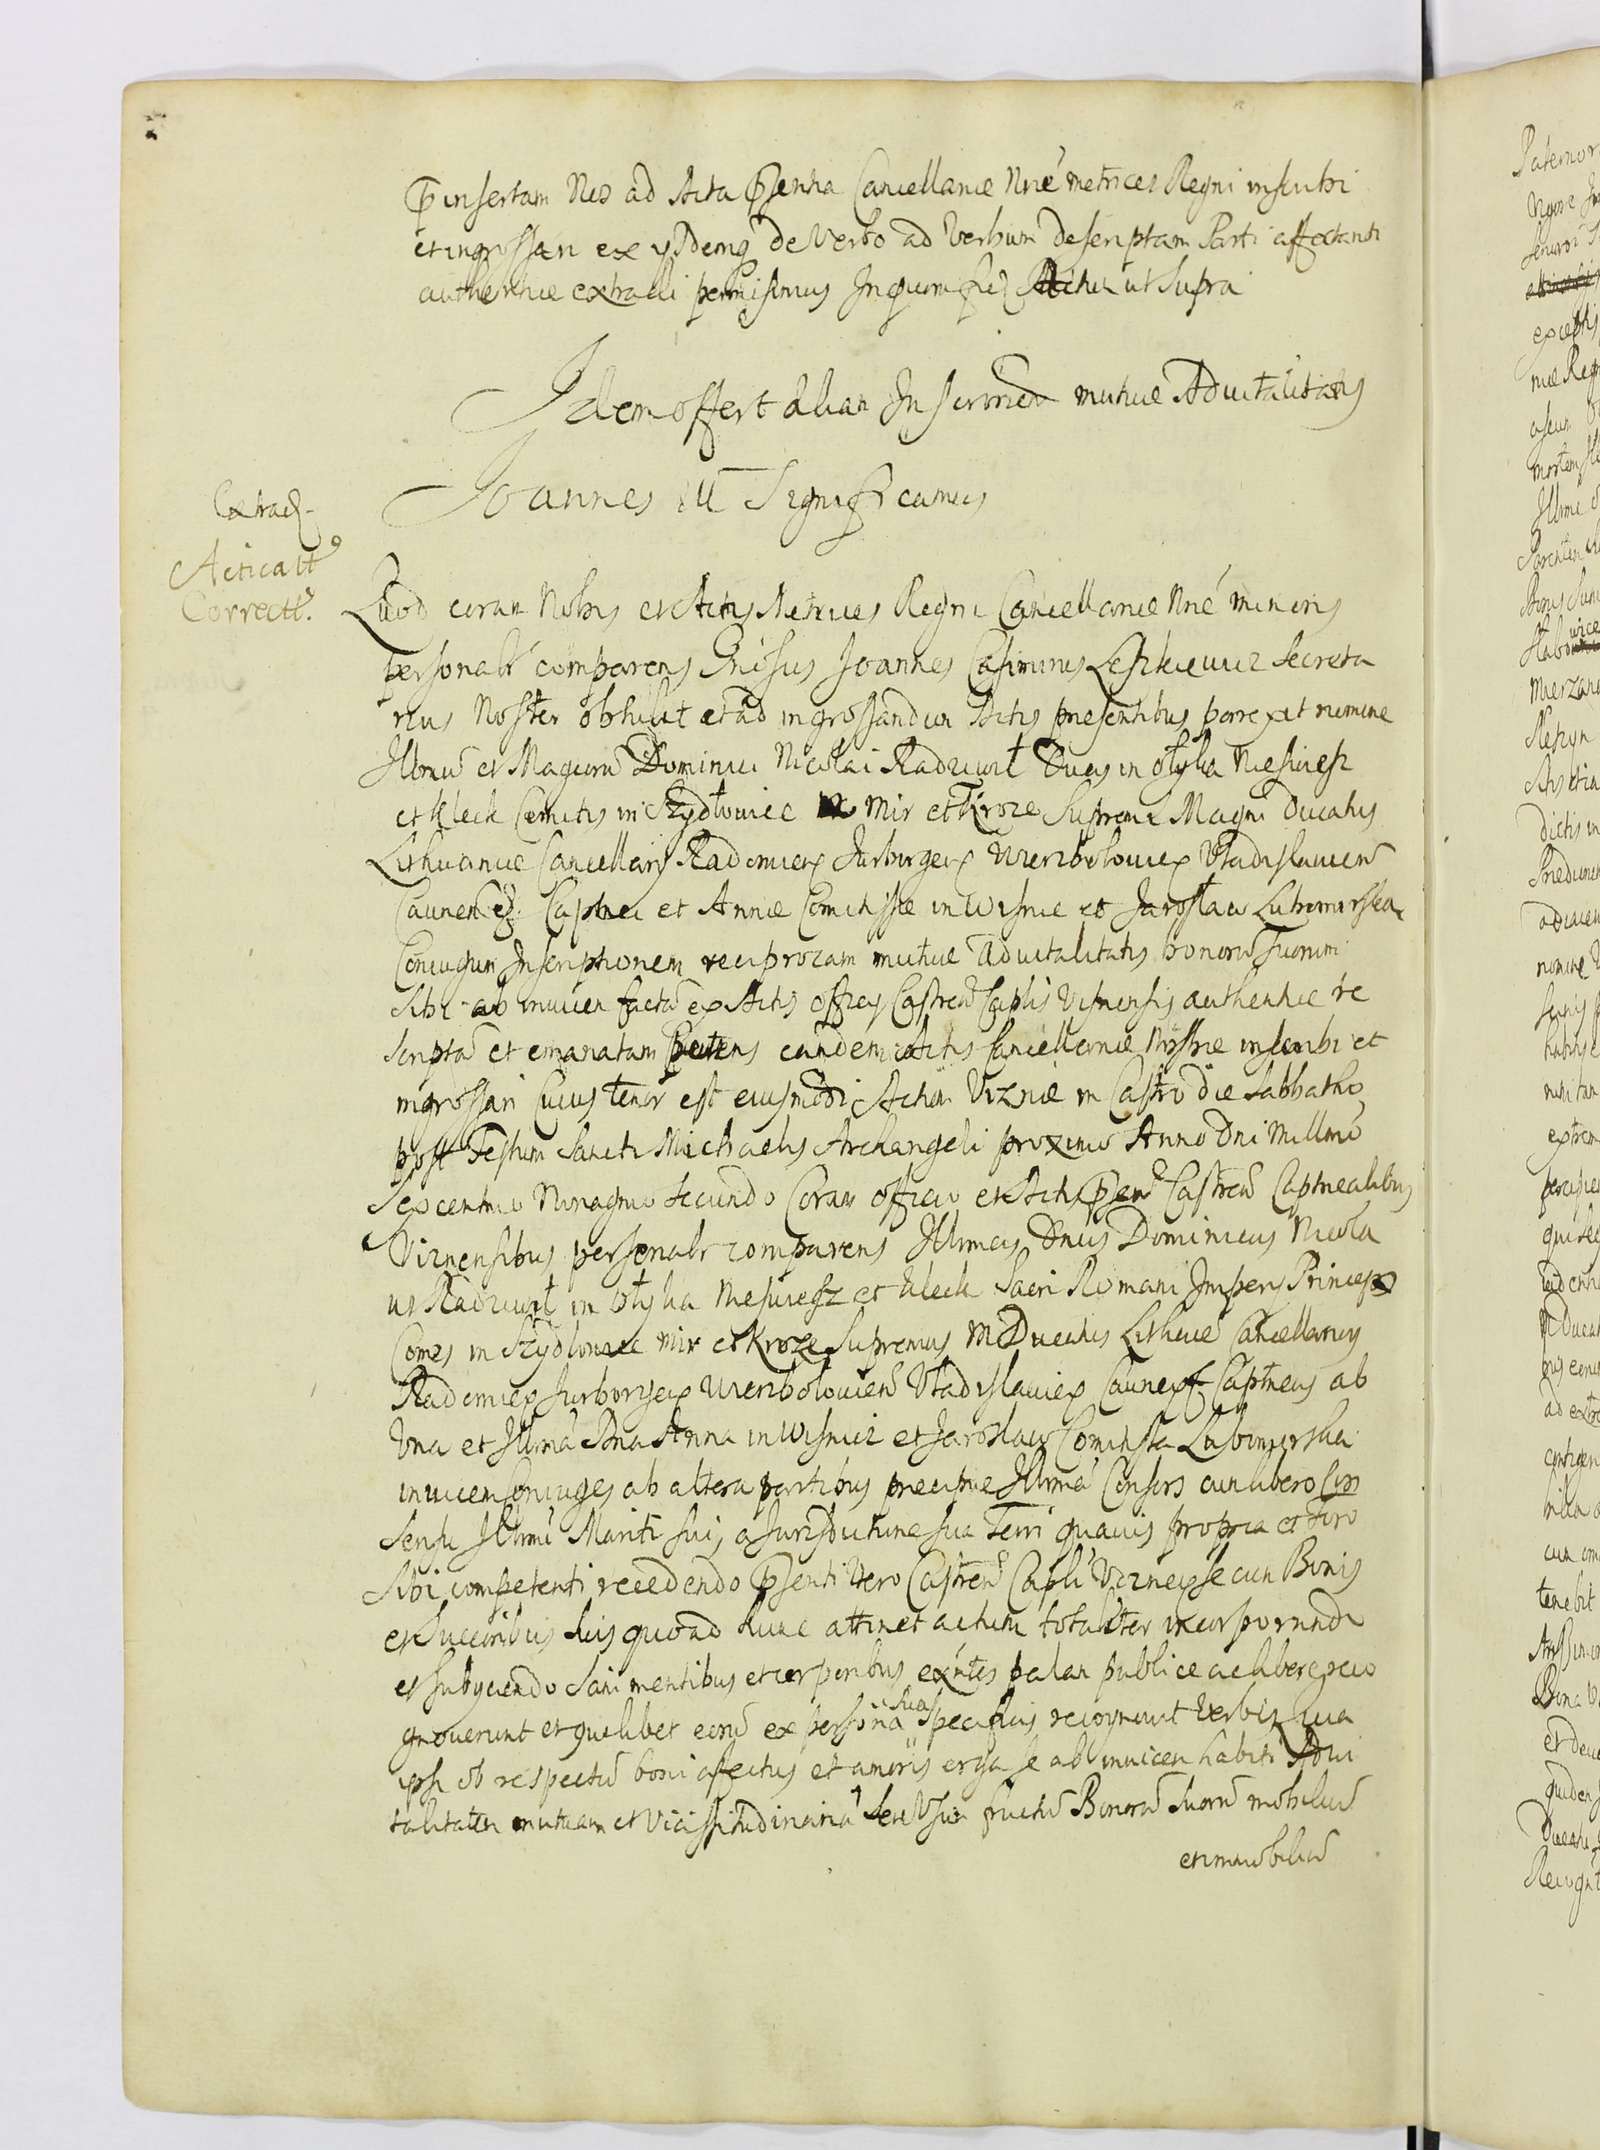 insertam Nos ad Acta Psentia Cancellariae Nrae metrices Regni inscribi
et ingrossari ex ysdemq de Verbo ad Verbum descriptam Parti affectanti
authentice extradi permisimus In quorum fid Actum ut supra
Idem offert aliam Inscriptionem mutuae Advitalitatis
Joannes III Significamus
Extrad.
Acticatt
Correctt.
Quod coram Nobis et Actis Metrices Regni Cancellariae Nrae minoris
personalr comparens Gnosus Joannes Casimirus Leszkiewicz Secreta
rius Noster obtulit et ad ingrossandum Actis praesentibus porrexit nomine
Illmor et Magcor Dominici Nicolai Radziwił Ducis in Ołyka Nieswiesz
et Kleck Comitis in Szydłowiec Mir et Kroze Supremi Magni Ducatus
Lithuaniae Cancellarij Radomien Jurborgen Wierzbolowien Vladislavien
Caunen Capnei et Annae Comitissae in Wisnicz et Jarosław Lubomirska
Coniugum Inscriptionem reciprocam mutuae Advitalitatis bonorum suorum
Sibi ab invicem factam ex Actis Officij Castren Caplis Visnensis authentice re
scriptam et emanatam Petens eandem Actis Cancellariae Nostrae inscribi et
ingrossari Cuius tenor est eiusmodi Actum Viznae in Castro die Sabbatho
post Festum Sancti Michaelis Archangeli proximo Anno Dni Millmo
Sexcentmo Nonagmo Secundo Coram Officio et Actis Psen Castren Capnealibus
Viznensibus personalr comparens Illmus Dnus Dominicus Nicola
us Radziwił in Ołyka Nieswiesz et Kleck Sacri Romani Imperij Princeps
Comes in Szydłowiec Mir et Kroze Supremus M Ducatus Lithuae Cancellarius
Radomien Jurborgen Wierzbolowien Vladislavien Caunen Captneus ab
Una et Illma Dna Anna in Wisnicz et Jarosław Comitissa Lubomirska
invicem Coniuges ab altera partibus praecipue Illma Consors cum libero Con
sensu Illmi Mariti sui, a Jurisdictione sua Terri quavis propria et foro
Sibi competenti recedendo Psenti vero Castren Capli Viznen se cum Bonis
et Succoribus suis quoad hunc attinet actum totaliter incorporando
et subyciendo Sani mentibus et corporibus exntes palam publice ac libere reco
gnoverunt et quilibet eorum ex persona sua specificis recognovit verbis quia
ipsi ob respectum boni affectus et amoris erga se ab invicem habiti Advi
talitatem mutuam et Vicissitudinariam seu Usum fructum Bonorum suorum mobilium
et immobilium